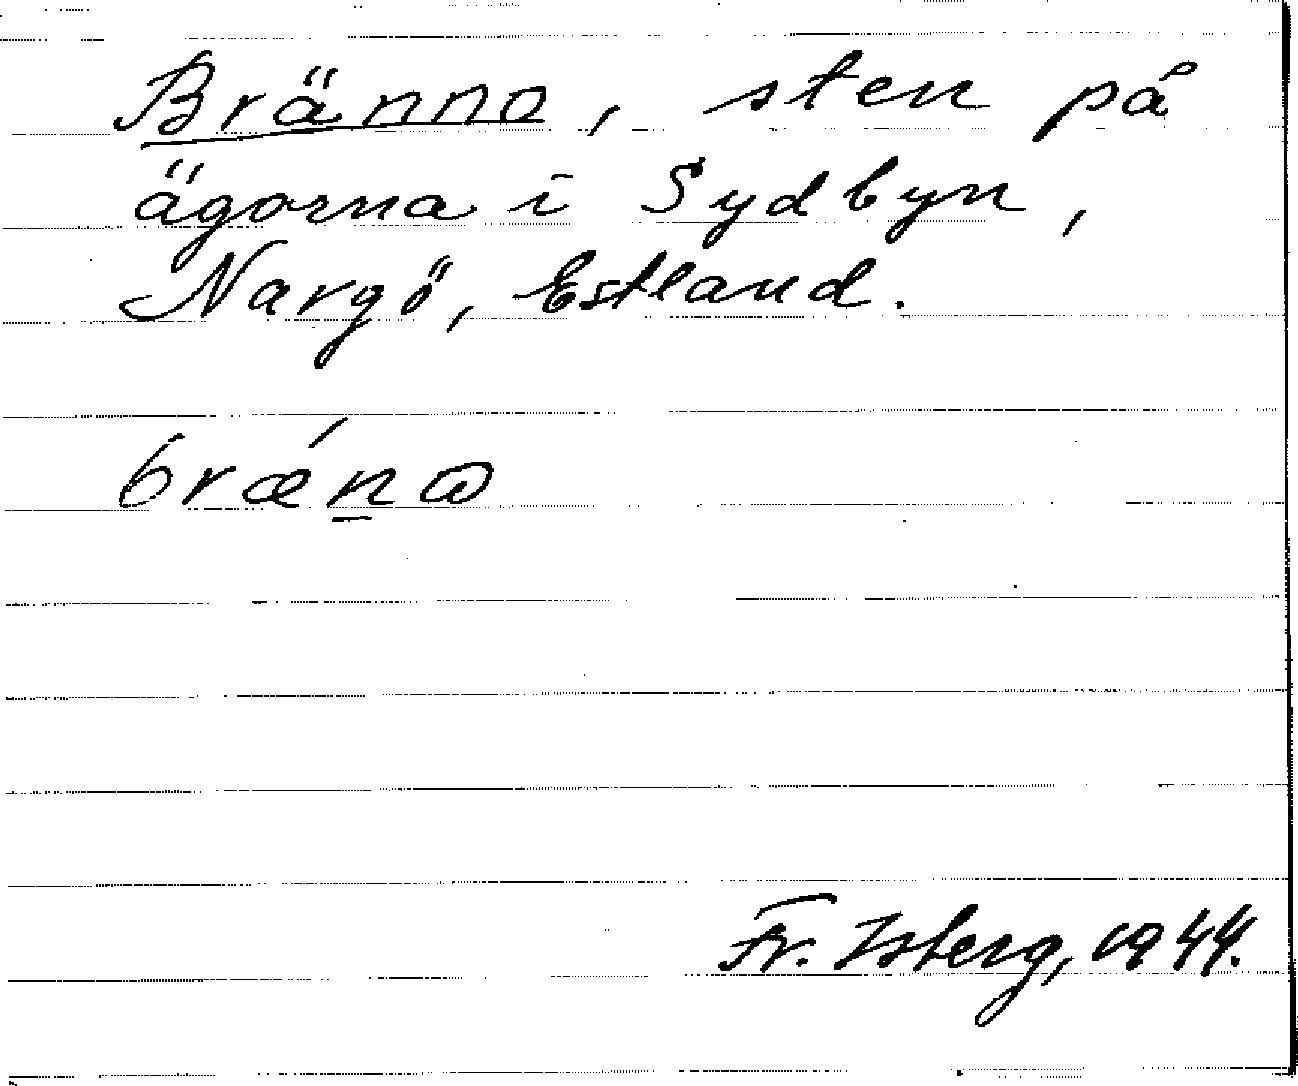 Bränno, sten på
ägorna i Sydbyn,
Nargö, Estland.
bræ´n̲ɷ
Fr. Isberg, 1944.